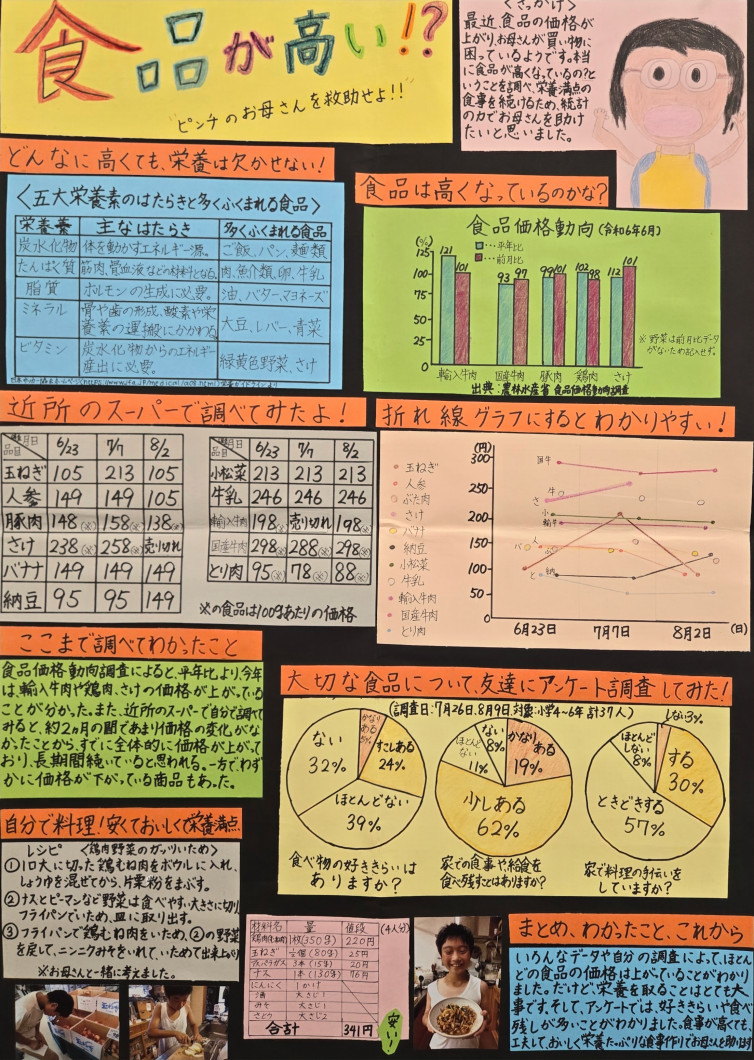 食品が高い!?
"ピンチのお母さんを救助せよ!!"
〈きっかけ〉
最近、食品の価格が
上がり、お母さんが買い物に
困っているようです。本当
に食品が高くなっているの?と
いうことを調べ、栄養満点の
食事を続けるため、統計
の力でお母さんを助け
たいと思いました。
どんなに高くても、栄養は欠かせない!
〈五大栄養素のはたらきと多くふくまれる食品〉
栄養養 主なはたらき 多くふくまれる食品
炭水化物 体を動かすエネルギー源。 ご飯、パン、麺類
たんぱく質 筋肉、骨、血液などの材料となる。 肉、魚介類、卵、牛乳
脂質 ホルモンの生成に必要。 油、バター、マヨネーズ
ミネラル 骨や歯の形成、酸素や栄養素の運搬にかかわる。 大豆、レバー、青菜
ビタミン 炭水化物からのエネルギー産出に必要。 緑黄色野菜、さけ
食品は高くなっているのかな?
食品価格動向(令和6年6月)
(%)
・・・平年比
・・・前月比
125
100
75
50
25
0
121 101 93 99 99 101 102 98 112 101
輸入牛肉 国産牛肉 豚肉 鶏肉 さけ
※野菜は前月比データ
がないため記入せず。
出典:農林水産省 食品価格動向調査
近所のスーパーで調べてみたよ!
月日 品目 6/23 7/7 8/2
玉ねぎ 105 213 105
人参 149 149 105
豚肉 148(※) 158(※) 138(※)
さけ 238(※) 258(※) 売り切れ
バナナ 149 149 149
納豆 95 95 149
月日 品目 6/23 7/7 8/2
小松菜 213 213 213
牛乳 246 246 246
輸入牛肉 198(※) 売り切れ 198(※)
国産牛肉 298(※) 288(※) 298(※)
とり肉 95(※) 78(※) 88(※)
※の食品は100gあたりの価格
折れ線グラフにするとわかりやすい!
(円)
300
250
200
150
100
50
0
玉ねぎ
人参
ぶた肉
さけ
バナナ
納豆
小松菜
牛乳
輸入牛肉
国産牛肉
とり肉
国牛
牛
さ
小
輸牛
人
バ
ぶ
納
と
6月23日 7月7日 8月2日 (日)
ここまで調べてわかったこと
食品価格動向調査によると、平年比より、今年
は、輸入牛肉や鶏肉、さけの価格が上がっている
ことが分かった。また、近所のスーパーで自分で調べて
みると、約2ヵ月の間であまり価格の変化がな
かったことから、すでに全体的に価格が上がって
おり、長期間続いていると思われる。一方でわず
かに価格が下がっている商品もあった。
大切な食品について、友達にアンケート調査してみた!
(調査日:7月26日、8月9日、対象:小学4~6年 計37人)
かなりある 5%
すこしある 24%
ほとんどない 39%
ない 32%
食べ物の好ききらいは
ありますか?
かなりある 19%
少しある 62%
ほとんどない 11%
ない 8%
家での食事や給食を
食べ残すことはありますか?
しない3%
する 30%
ときどきする 57%
ほとんどしない 8%
家で料理の手伝いを
していますか?
自分で料理!安くておいしく栄養満点
レシピ 〈鶏肉野菜のガッツいため〉
①1口大に切った鶏むね肉をボウルに入れ、
しょうゆを混ぜてから、片栗粉をまぶす。
②ナスとピーマンなど野菜は食べやすい大きさに切り、
フライパンでいため、皿に取り出す。
③フライパンで鶏むね肉をいため、②の野菜
を戻して、ニンニクみそをいれて、いためて出来上がり
※お母さんと一緒に考えました。
材料名 量 値段 (4人分)
鶏肉(むね肉) 1枚(350g) 220円
玉ねぎ 1/2個(80g) 25円
3本(15g) 20円
ナス 1本(130g) 76円
にんにく 1かけ
酒 大さじ1
みそ 大さじ1
さとう 大さじ2
合計 341円
安い!
まとめ、わかったこと、これから
いろんなデータや自分の調査によって、ほとん
どの食品の価格は上がっていることがわかり
ました。だけど、栄養を取ることはとても大
事です。そして、アンケートでは、好ききらいや食べ
残しが多いことがわかりました。食事が高くても
工夫して、おいしく栄養たっぷりな食事作りでお母さんを助けます